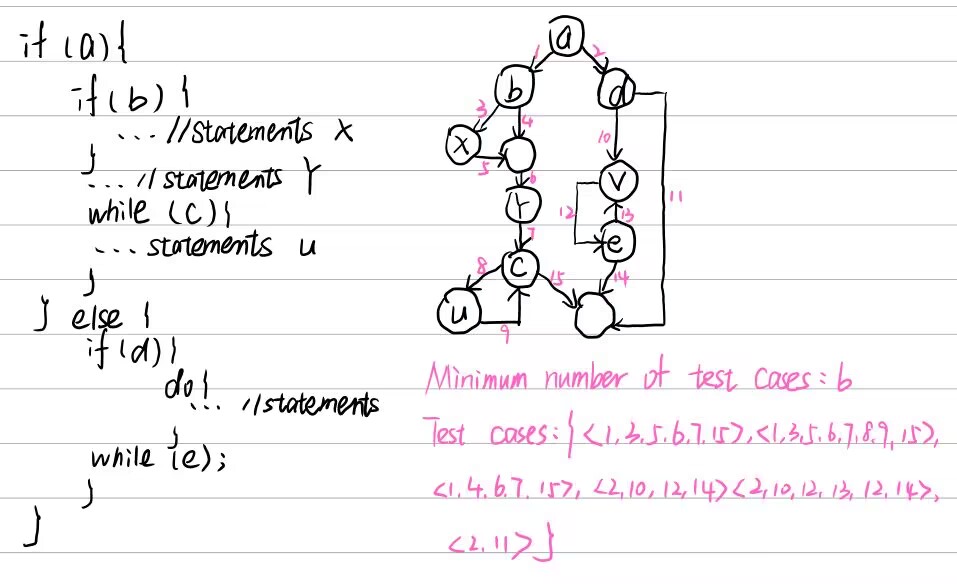 if (a){
if(b) {
... //statements X
}
... // statements Y
while (c){
... statements u
}
} else {
if(d){
do{
... //statements
}
while (e);
}
}
a
1
2
b
d
3
4
10
X
5
6
V
11
Y
12
13
7
e
c
8
15
14
u
9
Minimum number of test cases: 6
Test cases: { <1,3,5,6,7,15>, <1,3,5,6,7,8,9,15>,
<1,4,6,7,15>, <2,10,12,14> <2,10,12,13,12,14>,
<2,11> }